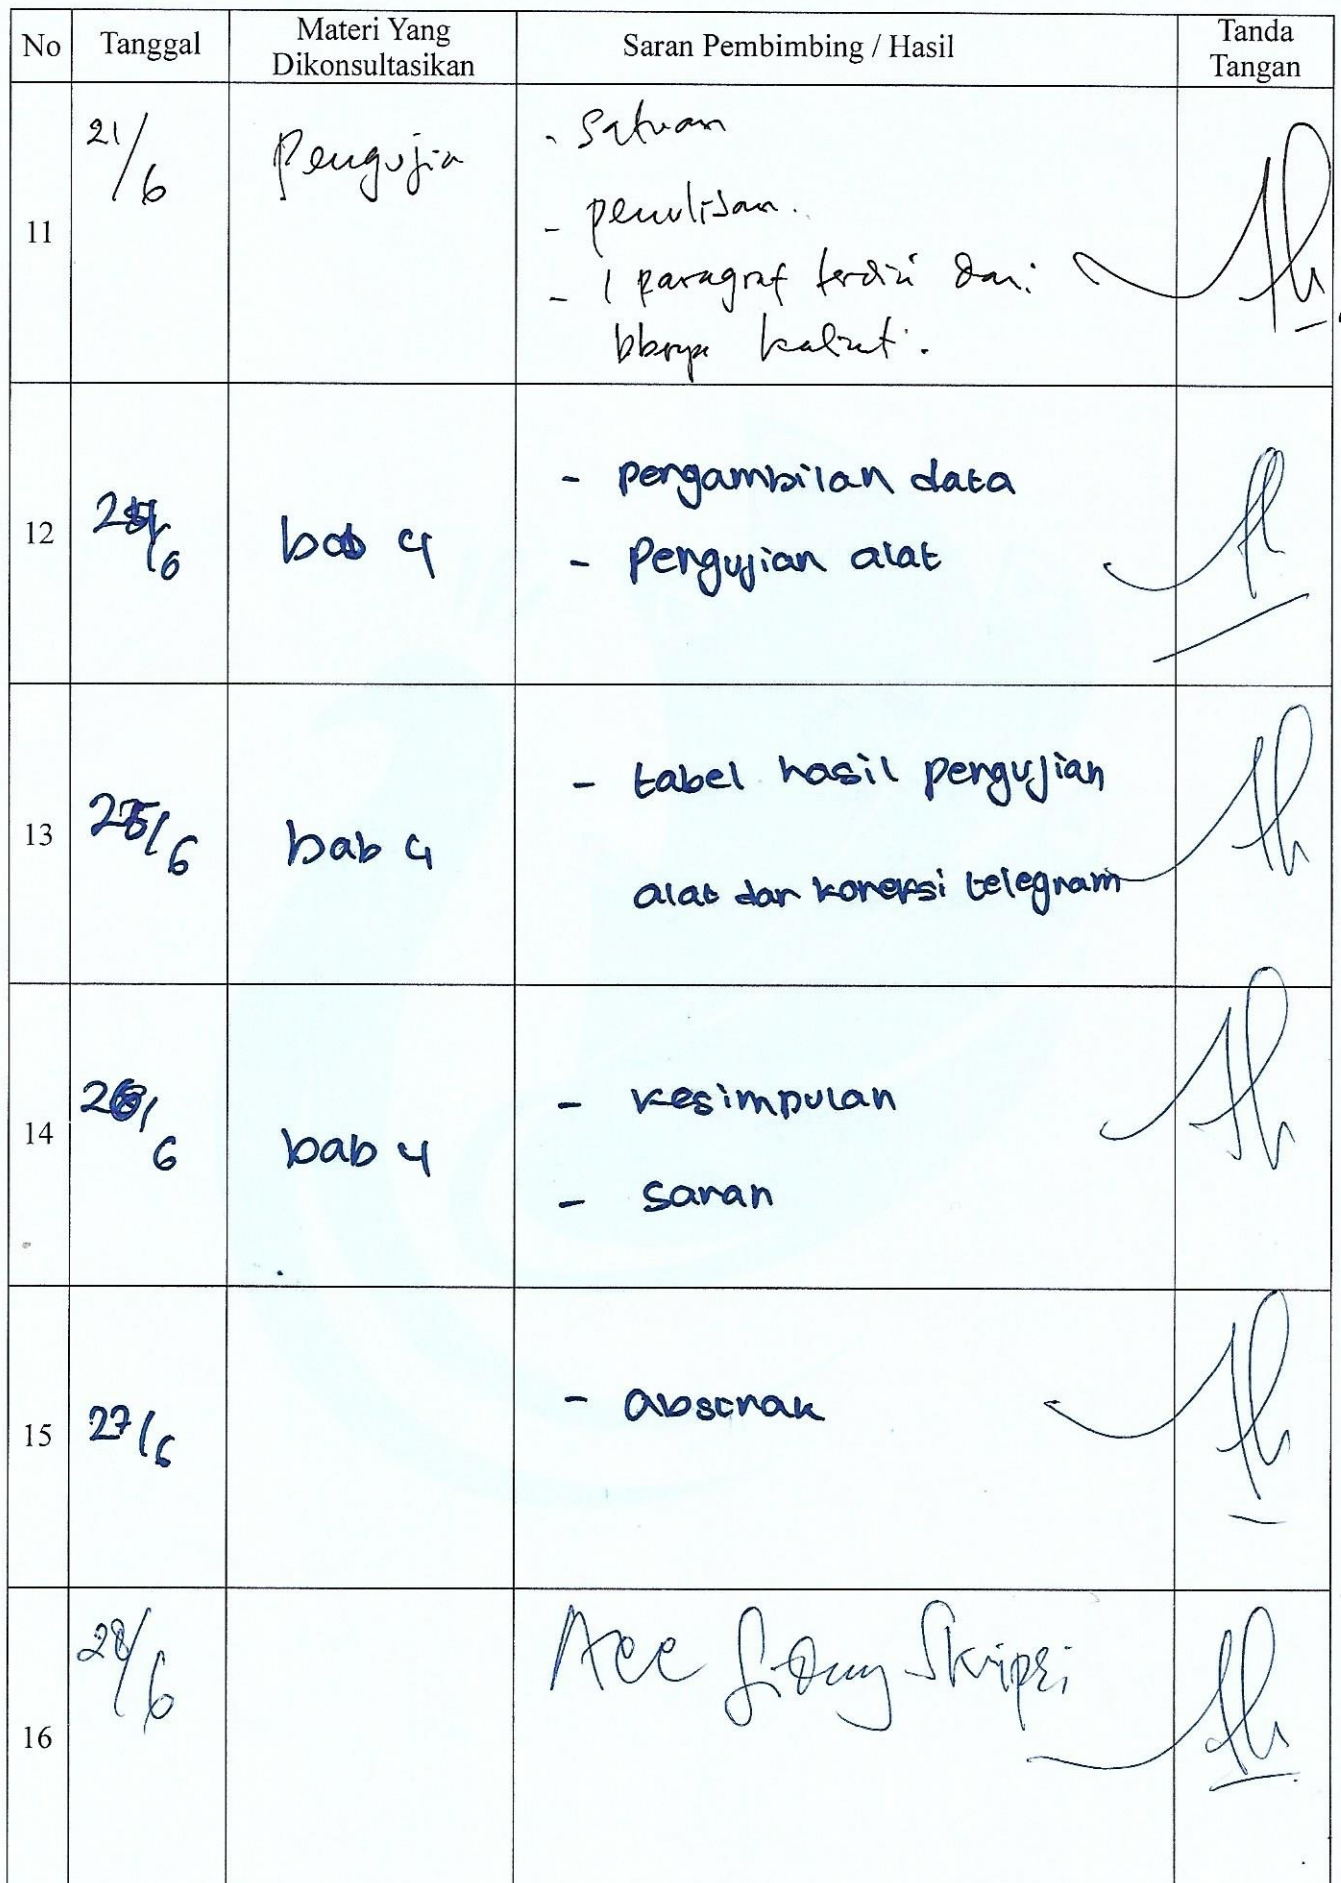 No Tanggal Materi Yang Dikonsultasikan Saran Pembimbing / Hasil Tanda Tangan
11 21/6 Pengujia - Satuan
- penulisan.
- 1 paragraf terdiri dari
bbrpa kalimat.
12 /6 bab 4 - pengambilan data
- Pengujian alat
13 25/6 bab 4 - tabel hasil pengujian
alat dan koreksi telegram
14 26/6 bab 4 - kesimpulan
- saran
15 27/6 - abstrak
16 28/6 Acc Sidang Skripsi